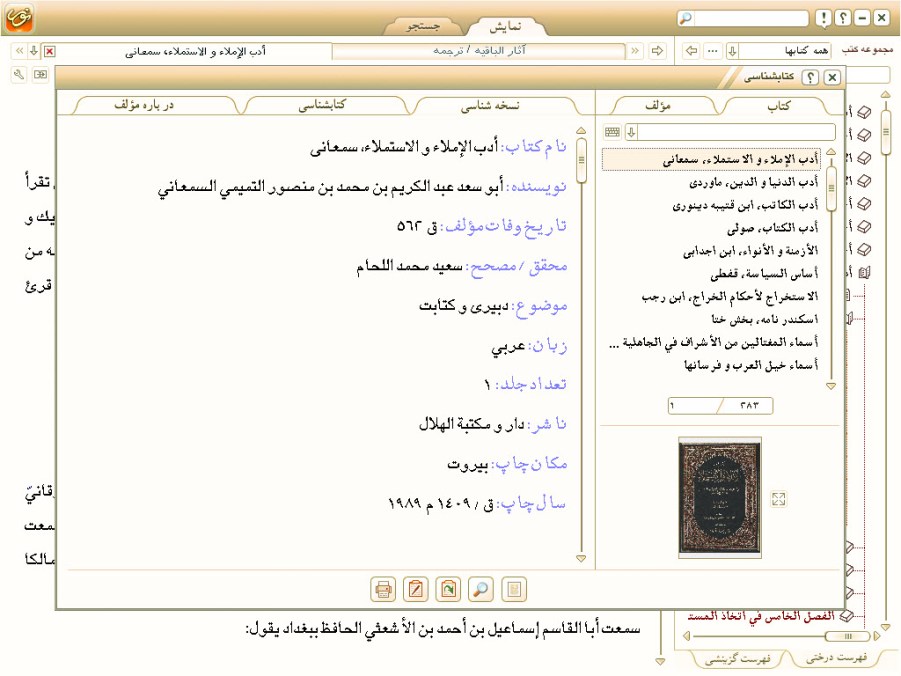 نمایش
جستجو
مجموعه کتب
همه کتابها
آثار الباقیه / ترجمه
أدب الإملاء و الاستملاء، سمعانی
کتابشناسی
کتاب
مؤلف
نسخه شناسی
کتابشناسی
در باره مؤلف
أدب الإملاء و الاستملاء، سمعانی
أدب الدنیا و الدین، ماوردی
أدب الکاتب، ابن قتیبه دینوری
أدب الکتاب، صولی
الأزمنة و الأنواء، ابن اجدابی
أساس السیاسة، قفطی
الاستخراج لأحکام الخراج، ابن رجب
اسکندر نامه، بخش ختا
أسماء المغتالین من الأشراف في الجاهلیة ...
أسماء خیل العرب و فرسانها
١ / ٢٨٣
نام کتاب: أدب الإملاء و الاستملاء، سمعانی
نویسنده: أبو سعد عبد الکریم بن محمد بن منصور التمیمي السمعاني
تاریخ وفات مؤلف: ٥٦٢ ق
محقق / مصحح: سعید محمد اللحام
موضوع: دبیری و کتابت
زبان: عربي
تعداد جلد: ١
ناشر: دار و مکتبة الهلال
مکان چاپ: بیروت
سال چاپ: ١٤٠٩ ق / ١٩٨٩ م
تقرأ
یك و
ه من
قرئ
سمعت
مالکا
سمعت أبا القاسم إسماعیل بن أحمد بن الأشعثي الحافظ ببغداد یقول:
الفصل الخامس في اتخاذ المست
فهرست درختی
فهرست گزینشی